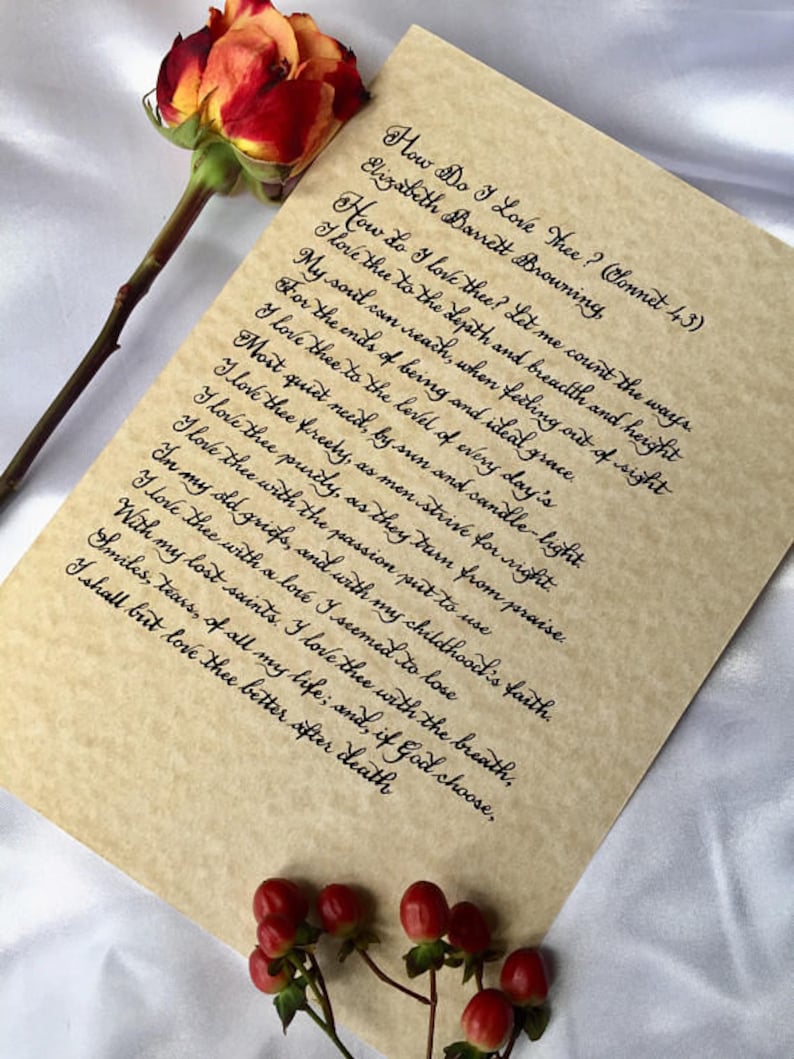 How Do I Love Thee? (Sonnet 43)
Elizabeth Barrett Browning,
How do I love thee? Let me count the ways.
I love thee to the depth and breadth and height
My soul can reach, when feeling out of sight
For the ends of being and ideal grace.
I love thee to the level of every day's
Most quiet need, by sun and candle-light.
I love thee freely, as men strive for right.
I love thee purely, as they turn from praise.
I love thee with the passion put to use
In my old griefs, and with my childhood's faith.
I love thee with a love I seemed to lose
With my lost saints. I love thee with the breath,
Smiles, tears, of all my life; and, if God choose,
I shall but love thee better after death